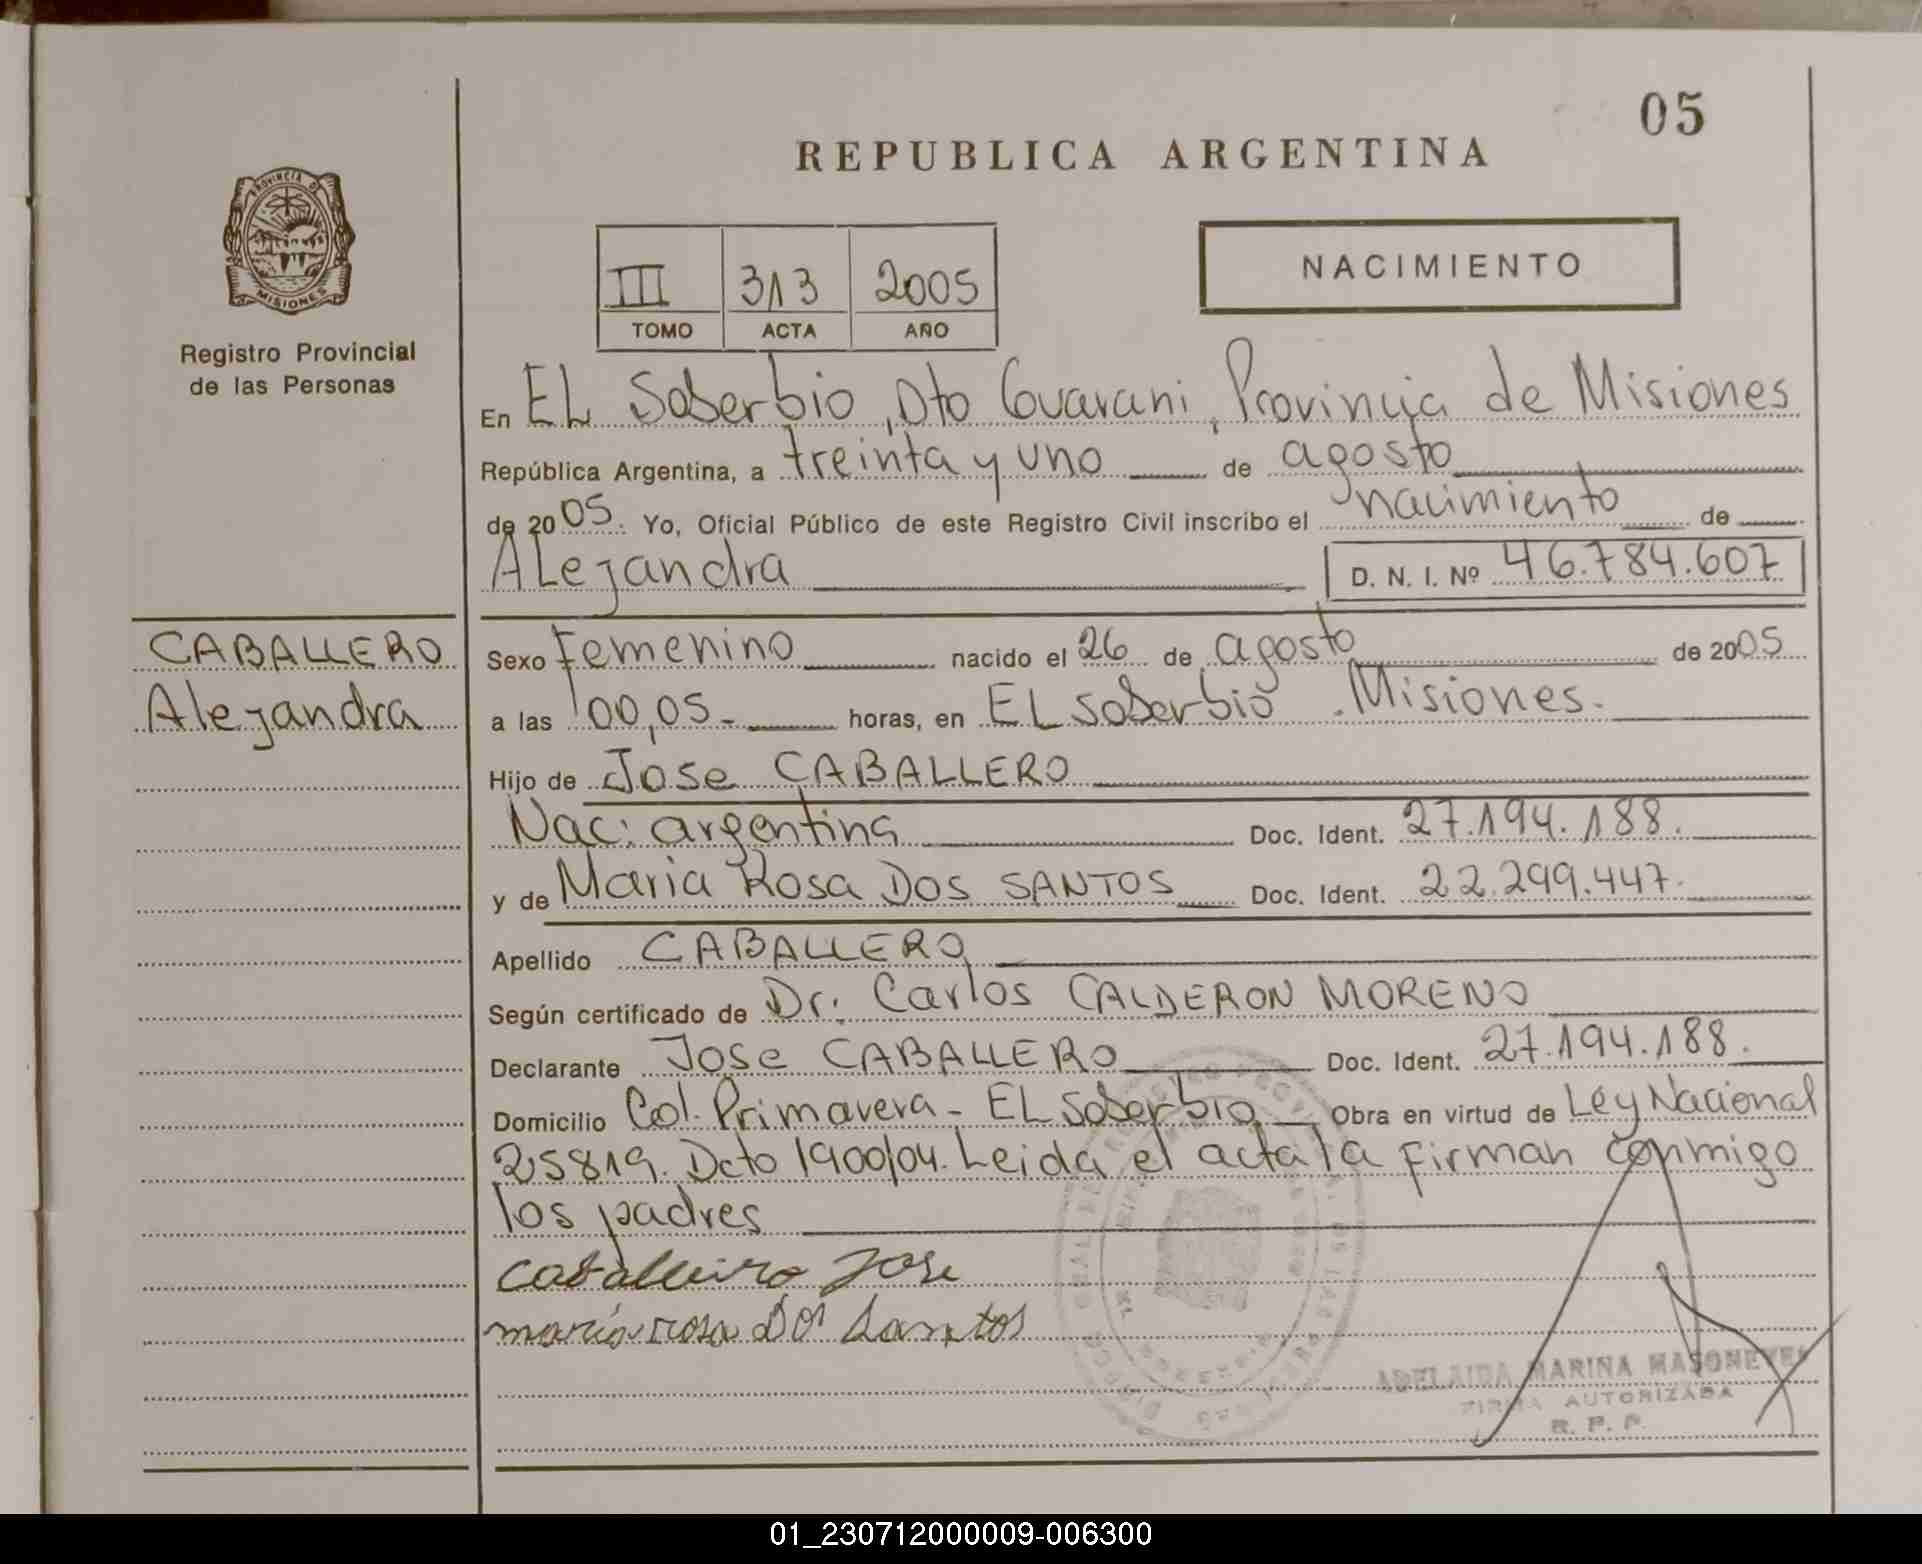 05
REPUBLICA ARGENTINA
PROVINCIA DE
MISIONES
Registro Provincial
de las Personas
III 313 2005
TOMO ACTA AÑO
NACIMIENTO
En EL Soberbio, Dto Guarani, Provincia de Misiones
República Argentina, a treinta y uno de agosto
de 2005. Yo, Oficial Público de este Registro Civil inscribo el nacimiento de
ALejandra D. N. I. Nº 46.784.607
CABALLERO
Alejandra
Sexo Femenino nacido el 26 de agosto de 2005
a las 00,05.- horas, en EL Soberbio. Misiones.
Hijo de Jose CABALLERO
Nac: argentina Doc. Ident. 27.194.188.
y de Maria Rosa DOS SANTOS Doc. Ident. 22.299.447.
Apellido CABALLERO
Según certificado de Dr. Carlos CALDERON MORENO
Declarante Jose CABALLERO Doc. Ident. 27.194.188.
Domicilio Col. Primavera - EL Soberbio Obra en virtud de Ley Nacional
25819. Dcto 1900/04. Leida el acta la firman conmigo
los padres
Caballeiro Jose
maria rosa Dos Santos
ADELAIDA MARINA
FIRMA AUTORIZADA
R. P. P.
01_230712000009-006300